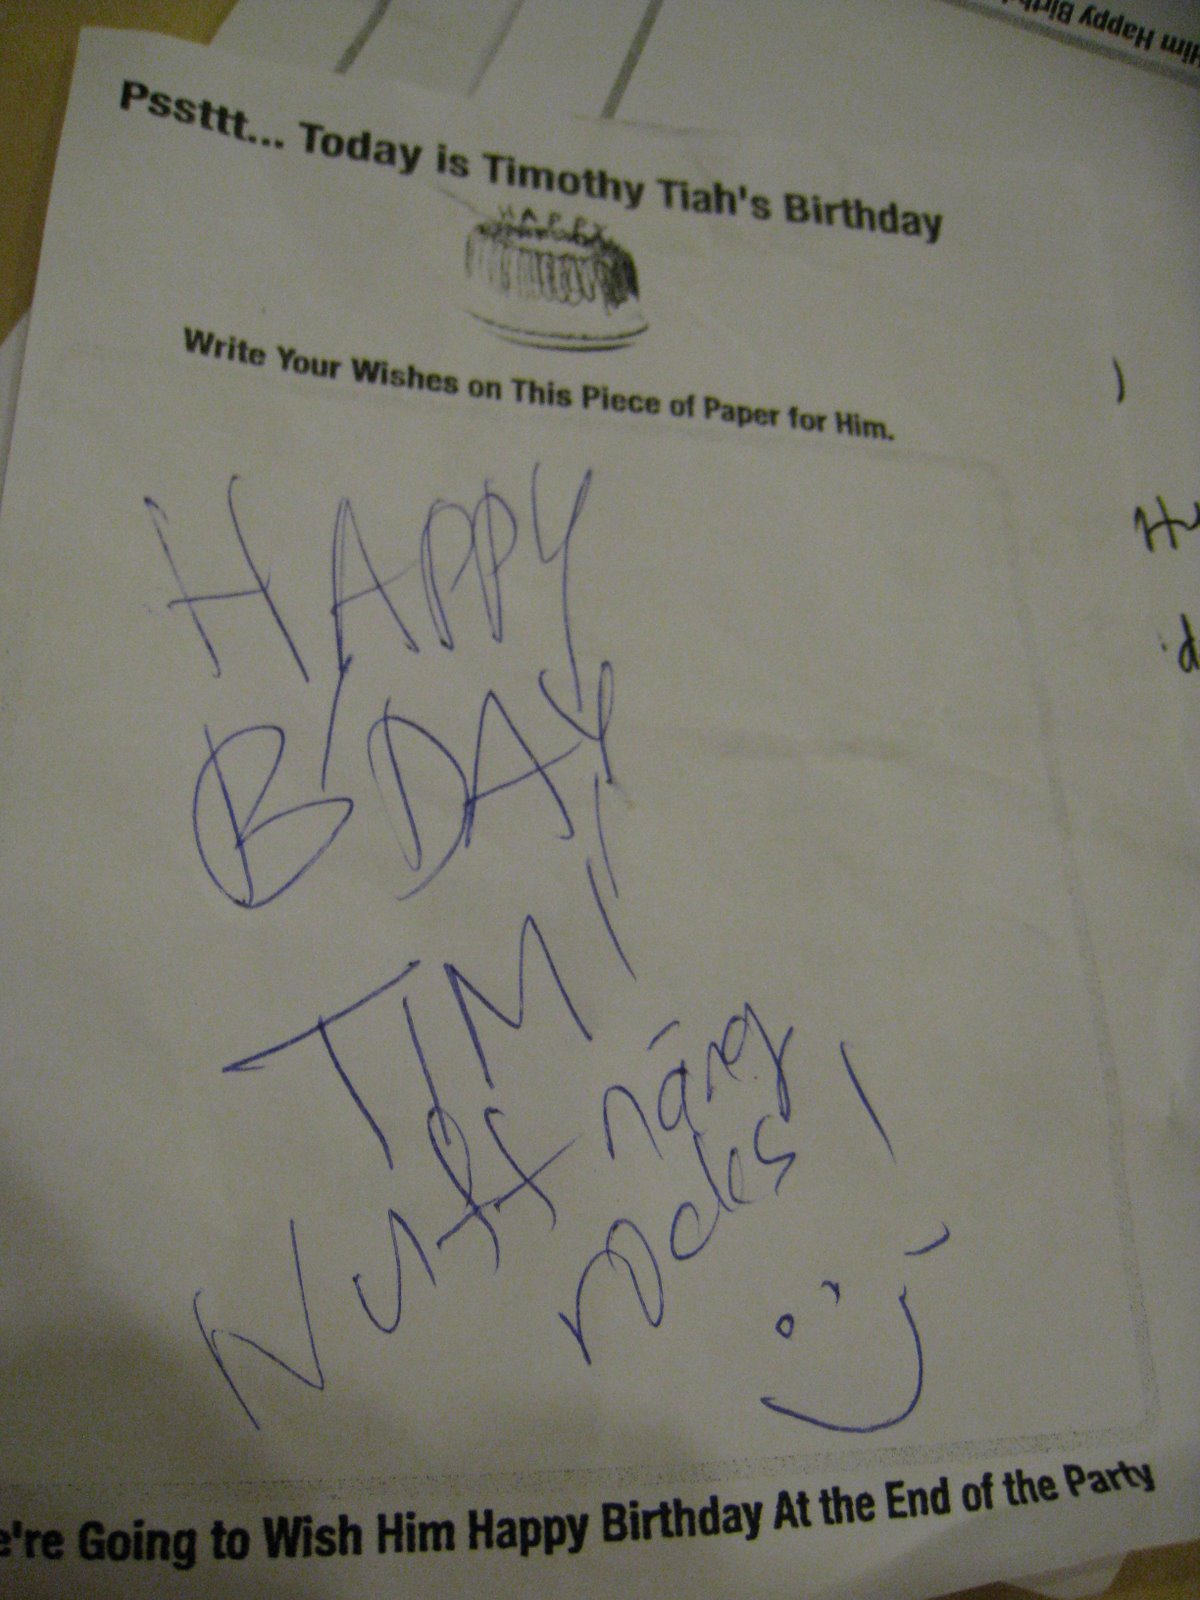 Him Happy Birth
Pssttt... Today is Timothy Tiah's Birthday
HAPPY
Write Your Wishes on This Piece of Paper for Him.
HAPPY
B'DAY
TIM!
Nuffnang
rocks!
e're Going to Wish Him Happy Birthday At the End of the Party